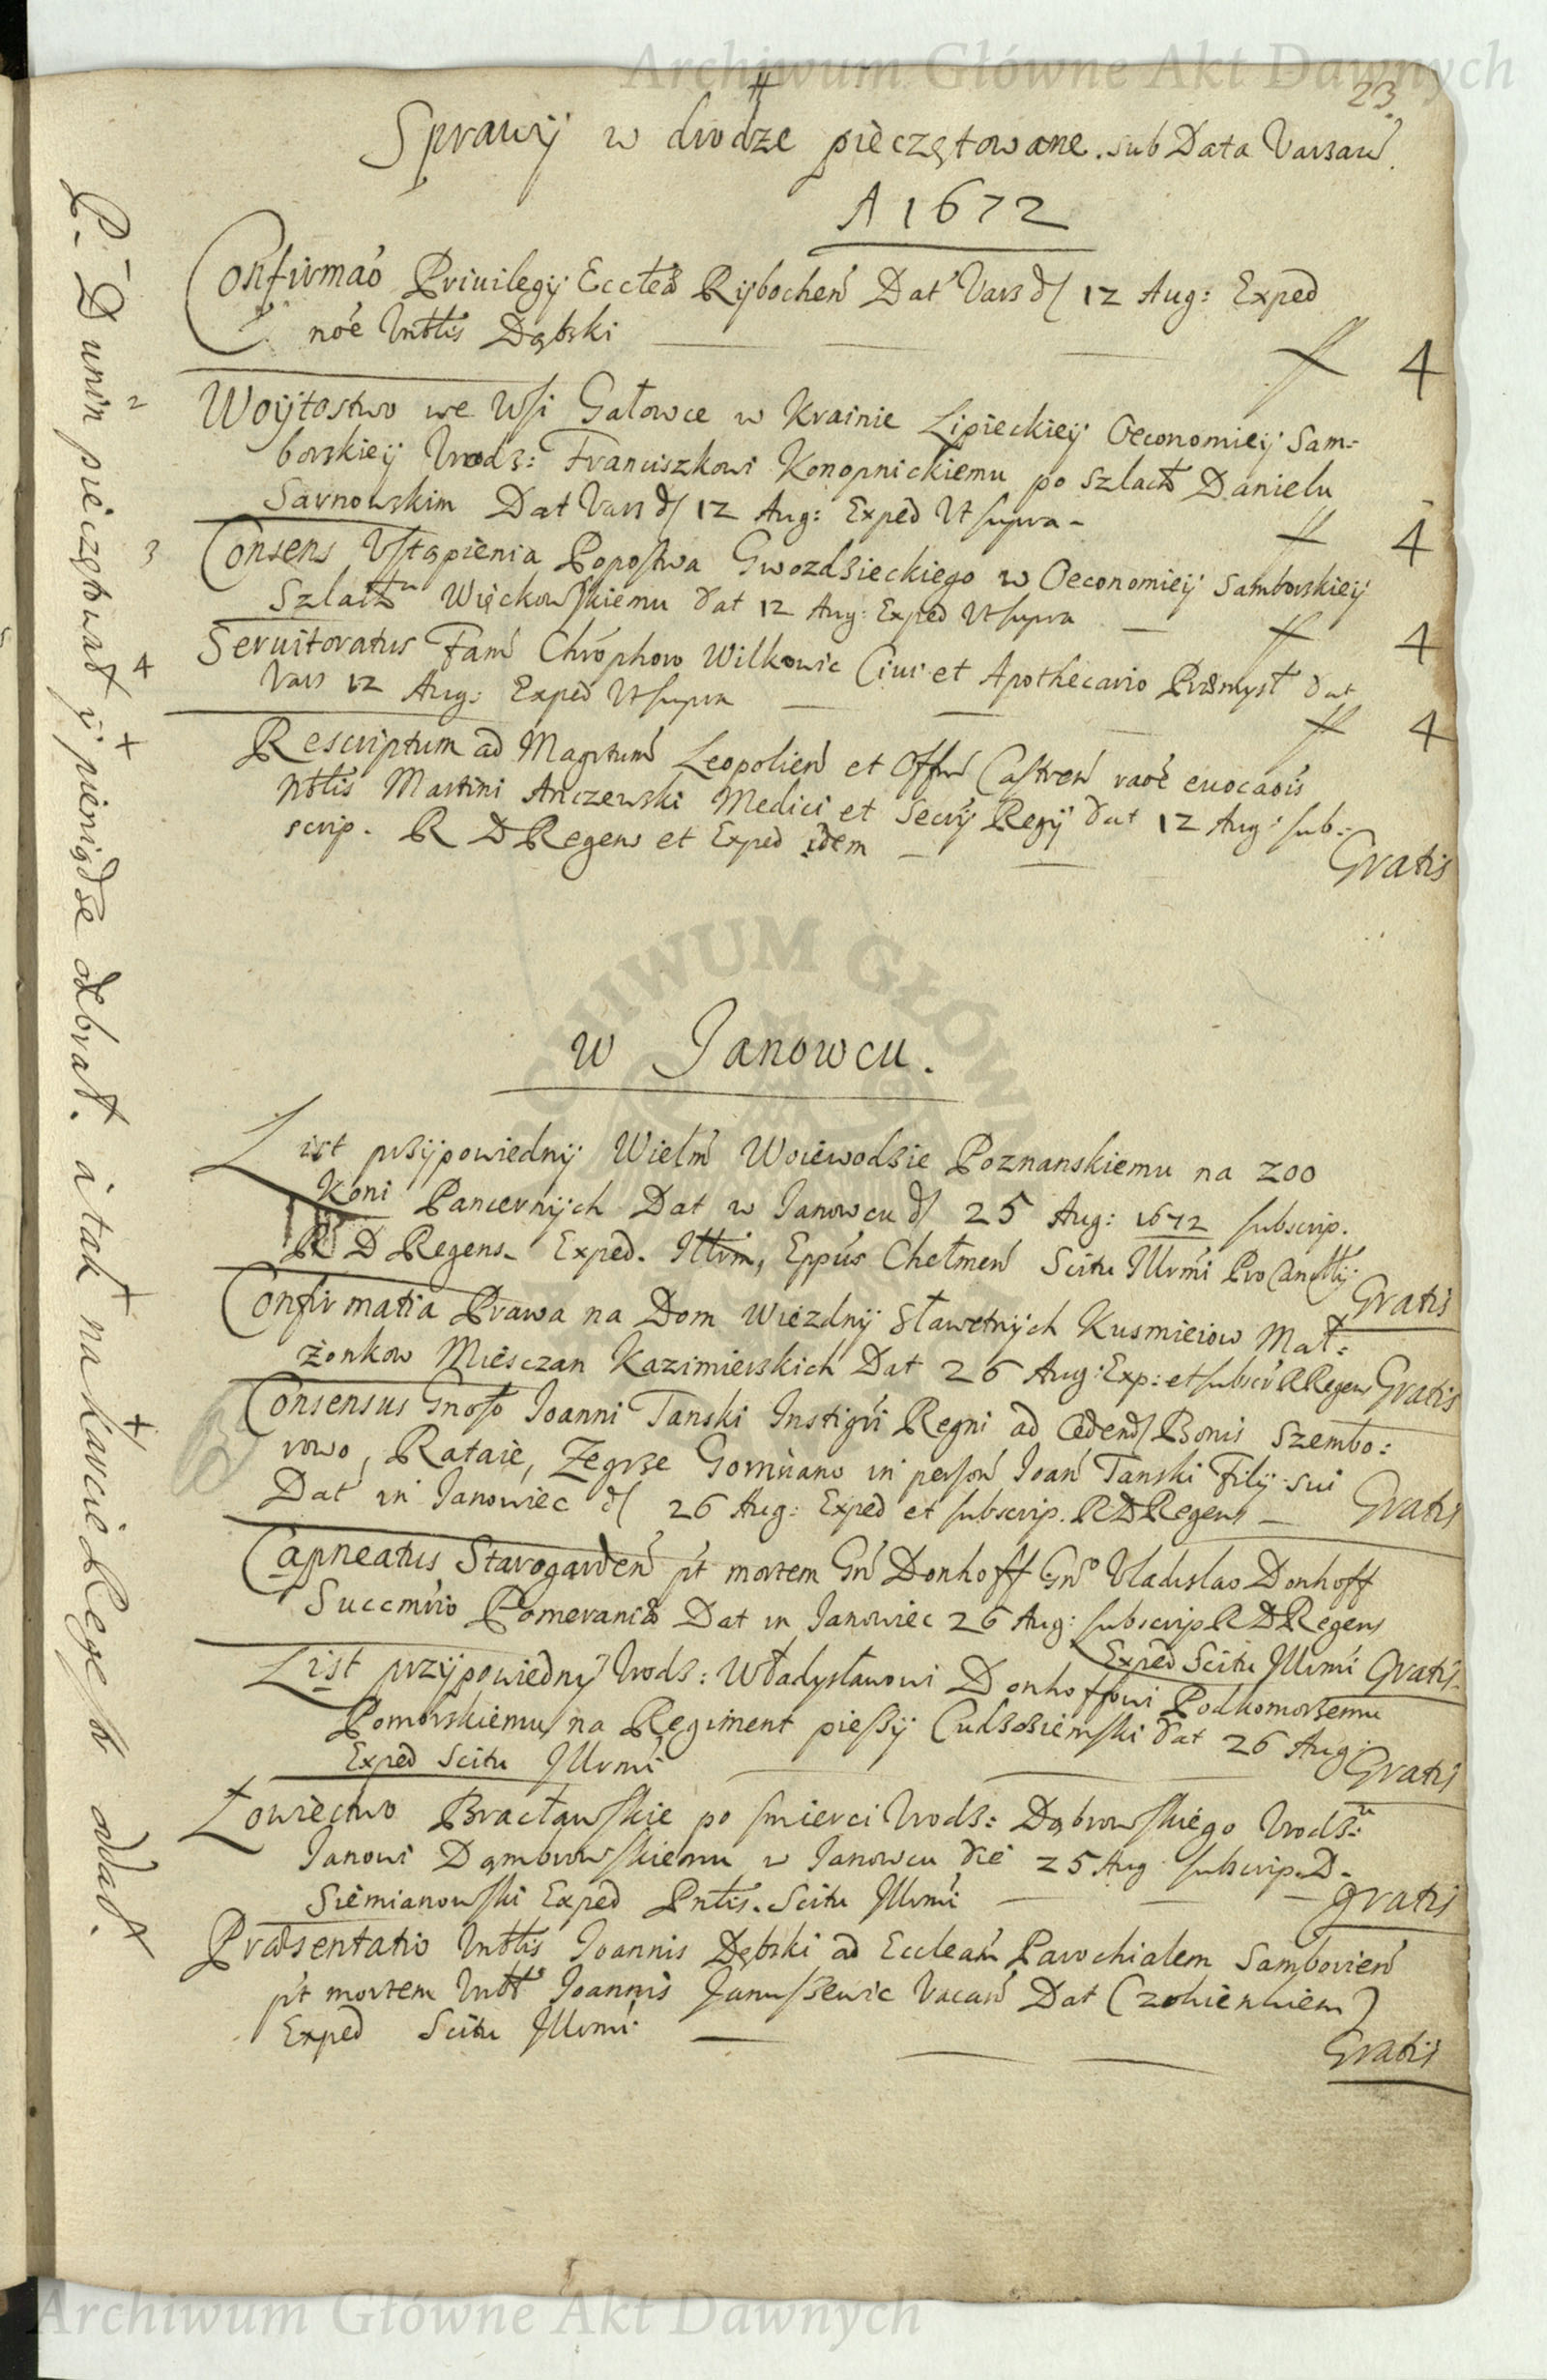 Archiwum Główne Akt Dawnych
23.
Sprawÿ w drodze pieczętowane. sub Data Varsaw.
A 1672
Confirmaó Priuilegÿ Eccłeæ Rÿbocheń Dat Vars d/ 12 Aug: Exped
nóe Vnbłis Dąbski f 4
2 Woÿtostwo we Wsi Gałowce w Krainie Lipieckieÿ Oeconomieÿ Sam=
borskieÿ Vrodz: Franciszkowi Konopnickiemu po szlach Danielu
Sarnowskim Dat Vars d/ 12 Aug: Exped Vt supra - f 4
3 Consens Vstąpienia Popostwa Gwozdzieckiego w Oeconomieÿ Samborskieÿ
Szlach Więckowskiemu dat 12 Aug: Exped Vt supra f 4
4 Seruitoratus Fam Chróphoro Wilkowic Ciui et Apothecario Præmysł dat
Vars 12 Aug: Exped Vt supra f 4
Rescriptum ad Magrtum Leopolień et Offm Castreń raoé euocaois
Nbłis Martini Anczewski Medici et Secrÿ Regÿ dat 12 Aug: sub-
scrip. R D Regens et Exped idem Gratis
w Janowcu.
List przÿpowiednÿ Wielm Woiewodzie Poznanskiemu na 200
Koni Pancernÿch Dat w Janowcu d/ 25 Aug: 1672 subscrip.
R D Regens. Exped. Illrm, Eppús Chełmeń Scitu Illrmi ProCancllÿ Gratis
Confirmatia Prawa na Dom wiezdnÿ Sławetnÿch Kusmierow Mał=
żonkow Miesczan Kazimierskich Dat 26 Aug: Exp: et subscr R Regens Gratis
Consensus Gnoso Joanni Tanski Instigri Regni ad cedend/ Bonis Szembo:
rowo, Rataie, Zegrze in person Joań Tanski Filÿ sui
Dat in Janowiec d/ 26 Aug: Exped et subscrip. R D Regens Gratis
Capneatus Starogardeń pt mortem Gń Donhoff Gńo Vladislao Donhoff
Succmrio Pomeraniæ Dat in Janowiec 26 Aug: subscrip R D Regens
Exped Scitu Illrmi Gratis
List przÿpowiednÿ Vrodz: Władysławowi Donhoffowi Podkomorzemu
Pomorskiemu na Regiment pieszÿ Cudzoziemski dat 26 Aug
Exped Scitu Illrmi Gratis
Łowiectwo Bracławskie po smierci Vrodz: Dąbrowskiego Vrodz:
Janowi Dąmbrowskiemu w Janowcu die 25 Aug subscrip. D.
Siemianowski Exped Pntis. Scitu Illrmi Gratis
Præsentatio Vnbłis Joannis Dąbski ad Eccleań Parochialem Samborień
pt mortem Vnbł Joannis Januszewic Vacań Dat
Exped Scitu Illrmi Gratis
P. Dunin pieczętował ÿ pieniądze odbrał. i tak na karcie Regestr oddał.
Archiwum Główne Akt Dawnych